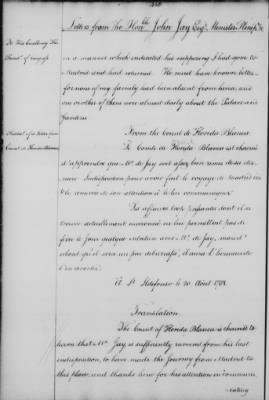 Letters from The Honble John Jay Esqr. Minister Plenipo.
To His Excellency The
Presid.t of Congress
in a manner which indicated his supposing I had gone to
Madrid and had returned. He must have known better
for none of my family had been absent from hence, and
one or other of them were almost daily about the Palace and
Gardens.
Receival of a letter from
Count de Florida Blanca
From the Count de Florida Blanca
Le Comte de Florida Blanca est charmé
d'apprendre que Mr. de Jay soit assez bien remis de sa der
niere Indisposition pour avoir fait le voyage de Madrid en
Les affaires trop dont il se
trouve actuellement environné ne lui permettent pas de
fixer le jour quelque entretien avec Mr. de Jay, mais d'
abord qu'il sera un peu debarassé, il aura l'honneur de
l'en avertir.
A St. Ildefonso le 20 Août 1781.
Translation.
The Count of Florida Blanca is charmed to
learn that Mr. Jay is sufficiently recovered from his last
indisposition, to have made the Journey from Madrid to
this place, and thanks him for his attention in communi
-cating